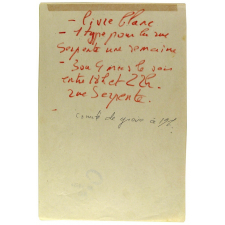 - livre blanc
- 1 type pour la rue
Serpente une semaine
- Bon G pour le soir
entre 18h et 22h.
rue Serpente.
comité de grève à 19h